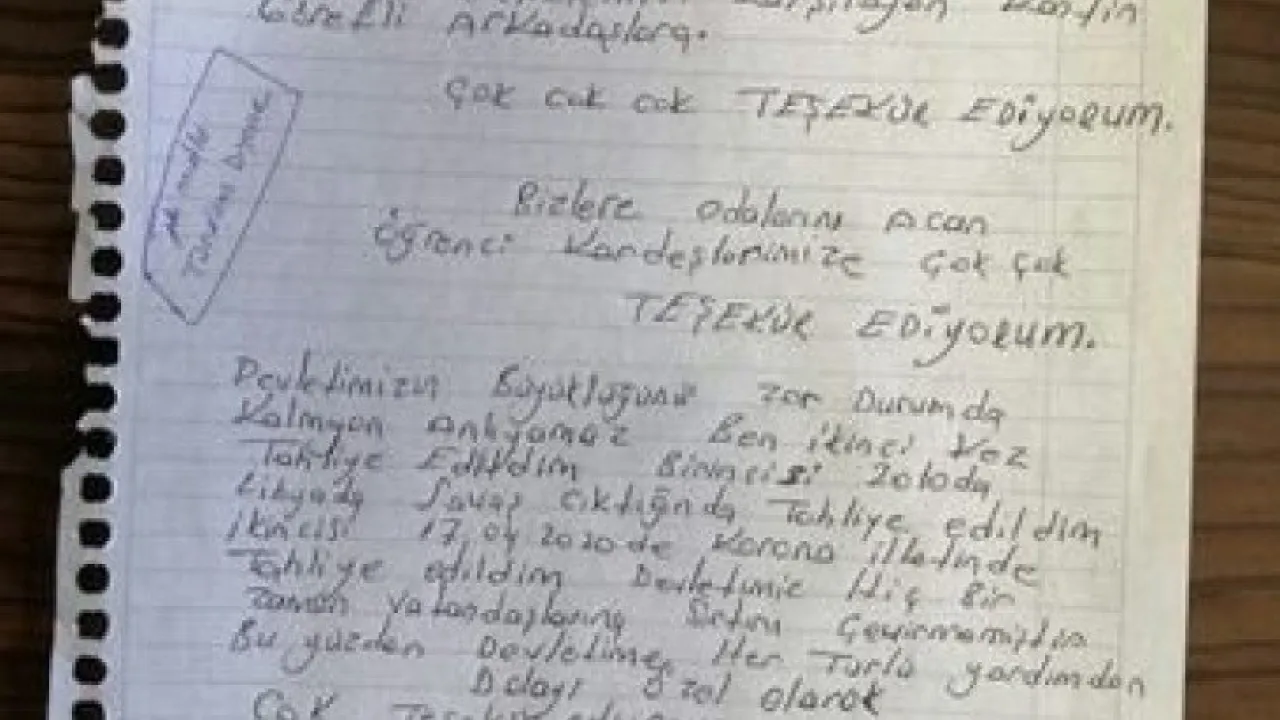 Görevli Arkadaşlara.
Çok cok cok TEŞEKÜR EDİYORUM.
Bizlere odalarını Acan
Öğrenci Kardeşlerimize Çok Çok
TEŞEKÜR EDİYORUM.
Devletimizin Büyüklüğünü zor Durumda
Kalmyan Anlıyamaz Ben ikinci Kez
Tahliye Edildim Birincisi 2010da
Libyada Savaş Cıktığında Tahliye edildim
ikincisi 17.04 2020de Korona illetinde
Tahliye edildim Devletimiz Hiç Bir
zaman Vatandaşlarına Sırtını Çevirmemiştir
Bu yüzden Devletime Her Türlü yardımdan
Dolayı Özel olarak
Çok